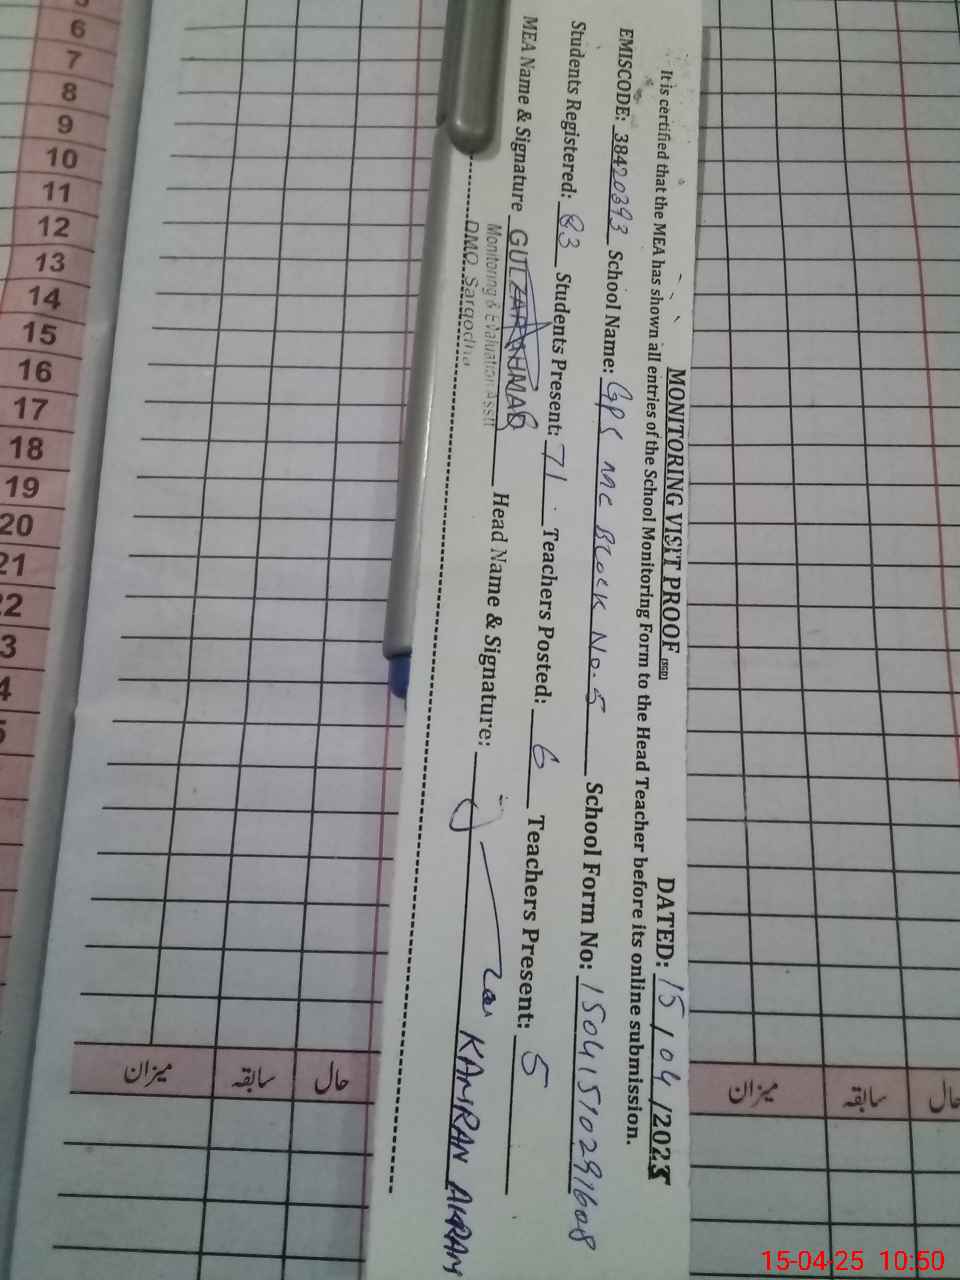 MONITORING VISIT PROOF DATED: 15/04/2025
It is certified that the MEA has shown all entries of the School Monitoring Form to the Head Teacher before its online submission.
EMISCODE: 38420393 School Name: GPS MC Block No. 5 School Form No: 15041510291608
Students Registered: 83 Students Present: 71 Teachers Posted: 6 Teachers Present: 5
MEA Name & Signature GULZAR AHMAD Head Name & Signature: KAMRAN AKRAM
Monitoring & Evaluation Asstt
DMO, Sargodha
6
7
8
9
10
11
12
13
14
15
16
17
18
19
20
21
میزان سابقہ حال
میزان سابقہ حال
15-04-25 10:50